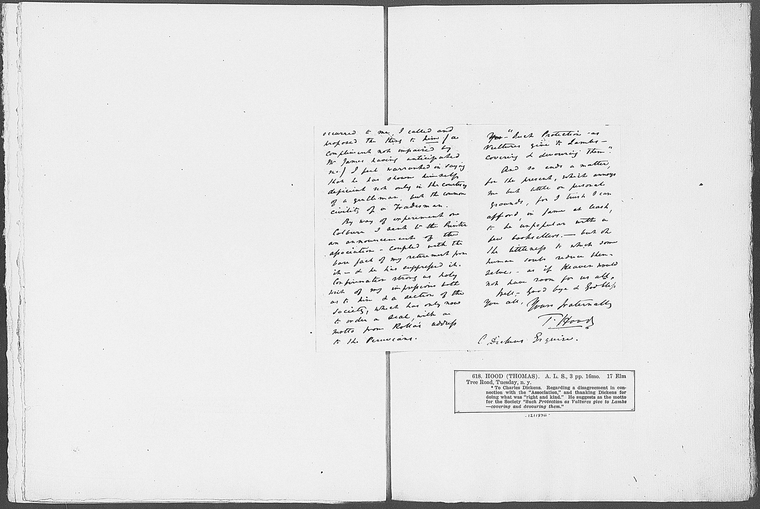 occurred to me, I called and
proposed the thing to him (a
compliment not impaired by
Mr James having anticipated
me) I feel warranted in saying
that he has shown himself
deficient not only in the courtesy
of a gentleman, but the common
civility of a Tradesman.
By way of experiment on
Colburn I sent to the Printer
an announcement of the
association – coupled with the
bare fact of my retirement from
it – & he has suppressed it.
Confirmation strong as holy
writ of my impressions both
as to him & a section of the
Society, which has only now
to order a Seal, with a
motto from Rolla's address
to the Peruvians.
"Such Protection as
Vultures give to Lambs –
covering & devouring them"
And so ends a matter,
for the present, which annoys
me but little on personal
grounds, for I trust I can
afford, in fame at least,
to be unpopular with a
few booksellers. – but the
littleness to which some
human souls reduce them-
selves – as if Heaven would
not have room for us all.
Well – Good bye & God bless
you all. Yours fraternally
T. Hood
C. Dickens Esquire.
618. HOOD (THOMAS). A. L. S., 3 pp. 16mo. 17 Elm
Tree Road, Tuesday, n. y.
* To Charles Dickens. Regarding a disagreement in con-
nection with the "Association," and thanking Dickens for
doing what was "right and kind." He suggests as the motto
for the Society "Such Protection as Vultures give to Lambs
—covering and devouring them."